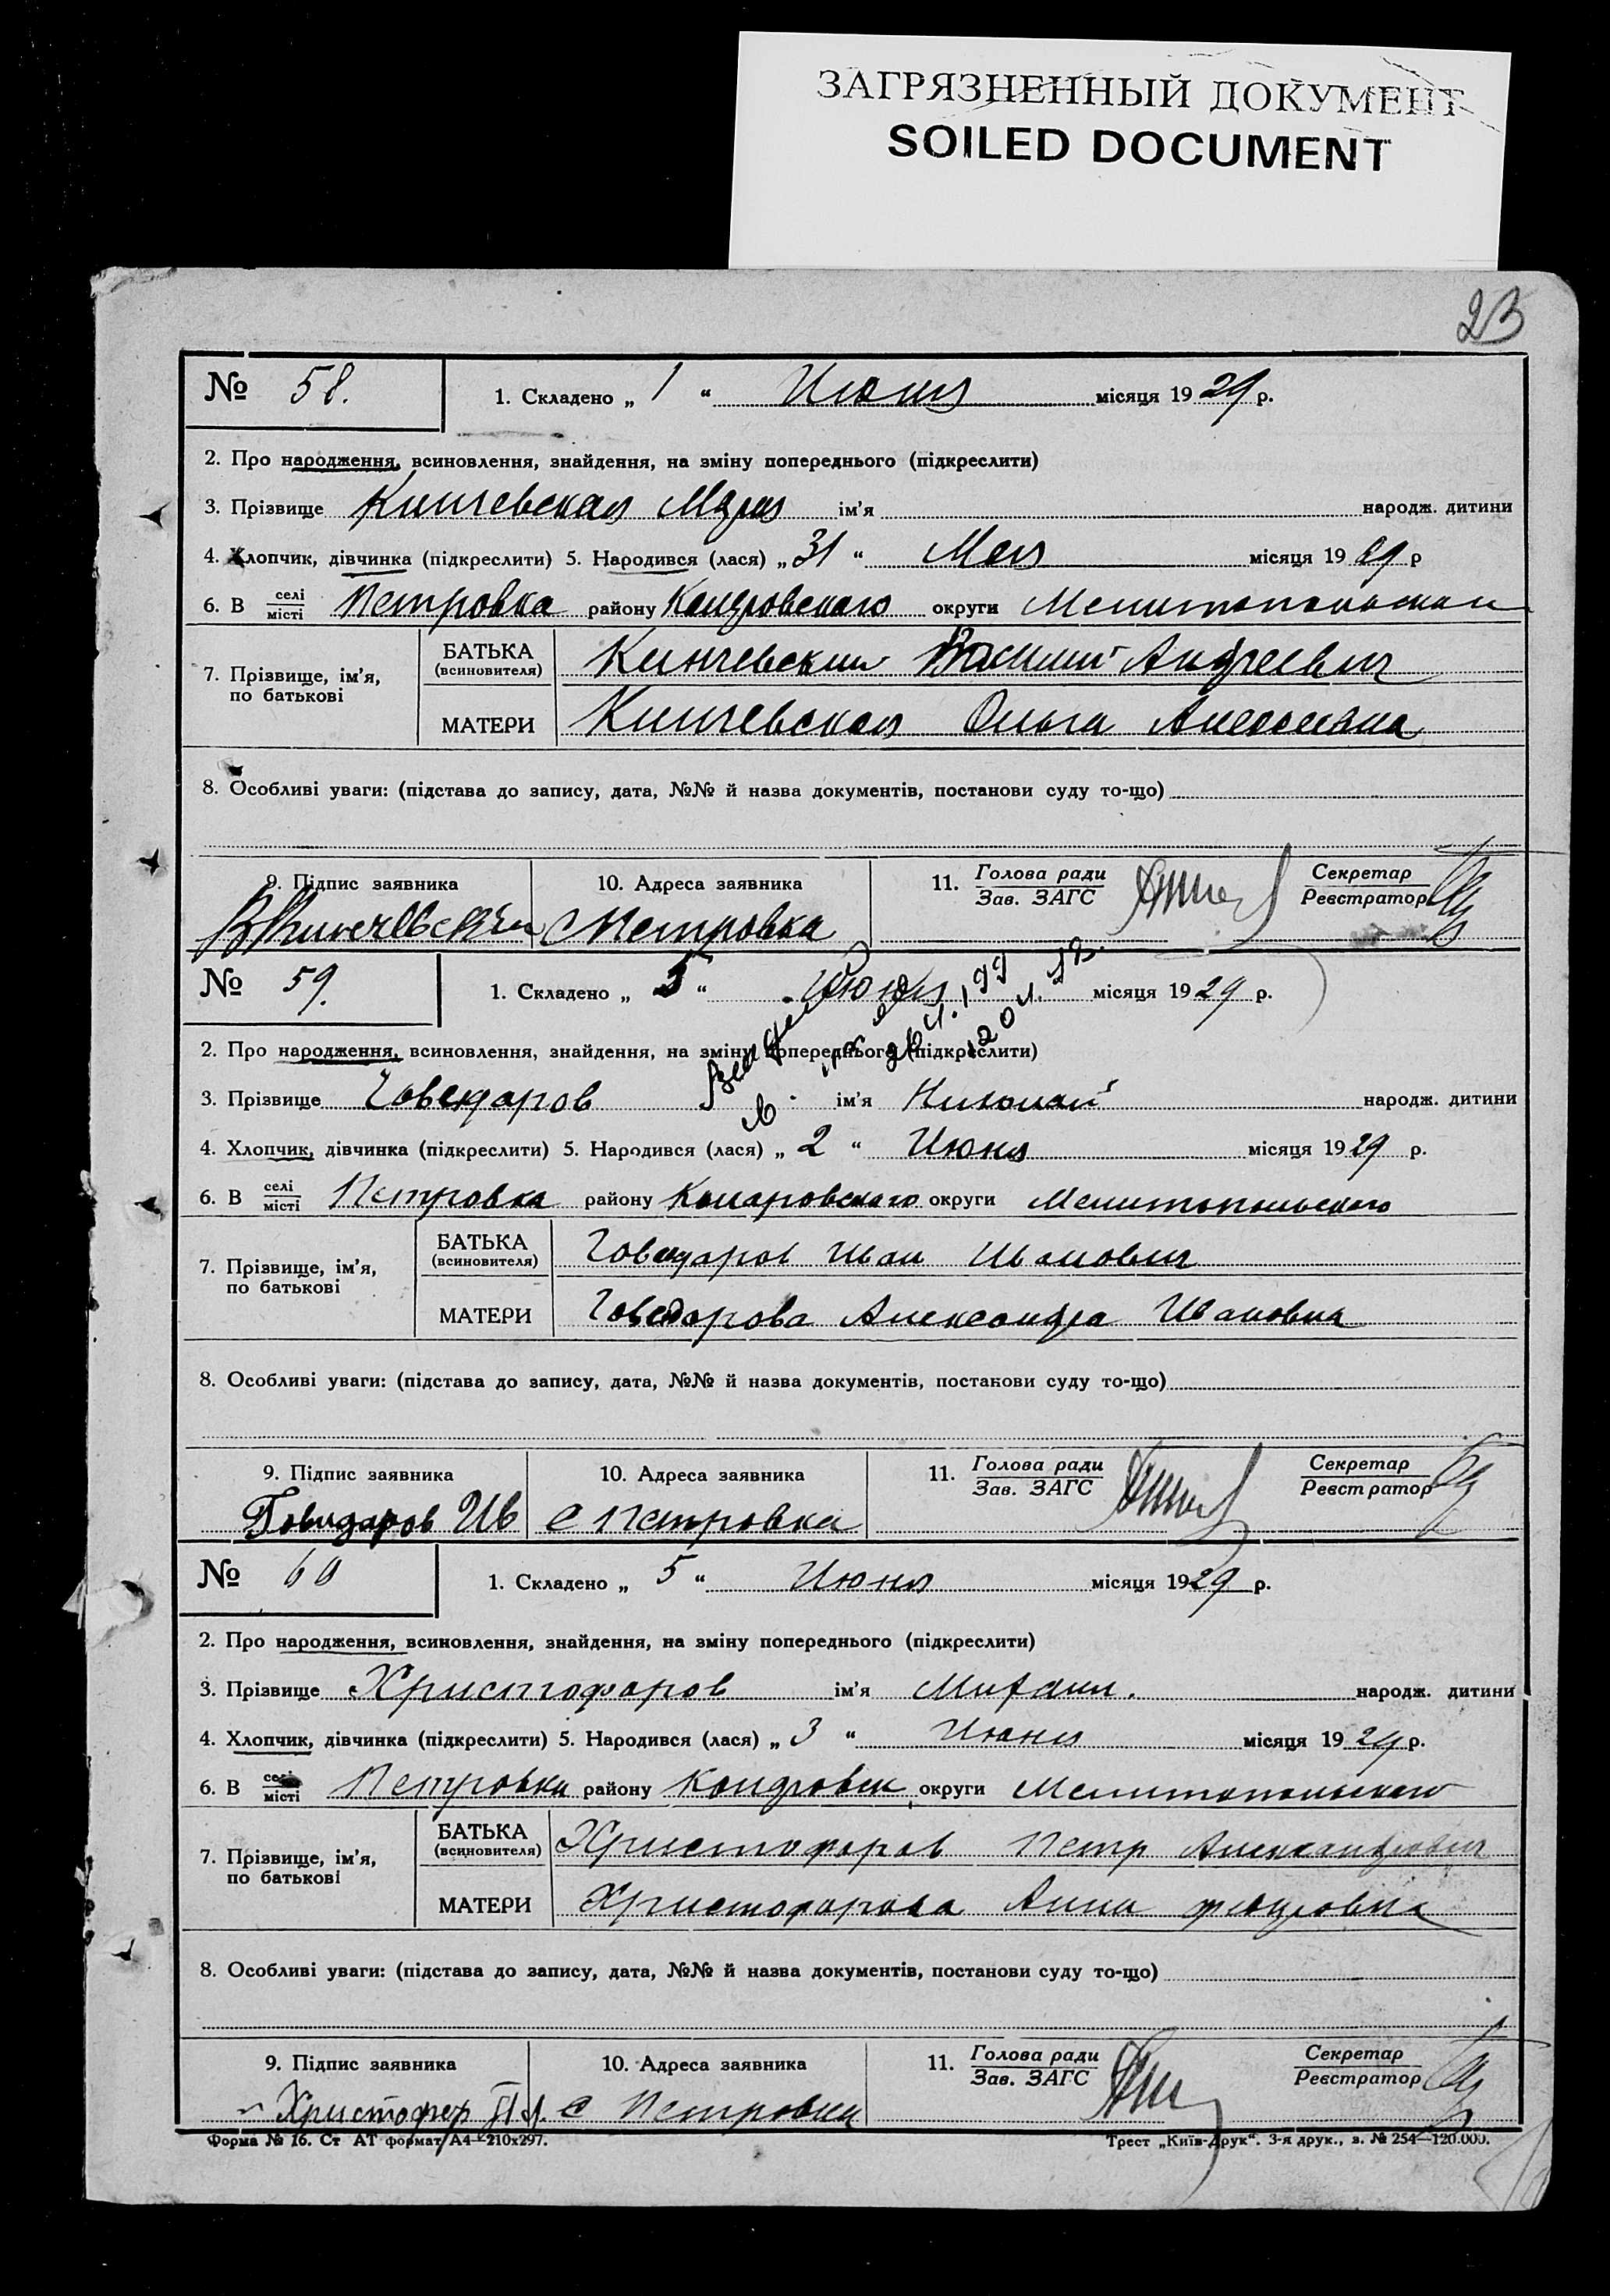 ЗАГРЯЗНЕННЫЙ ДОКУМЕНТ
SOILED DOCUMENT
23
№ 58. 1. Складено „ 1 “ Июня місяця 1929 р.
2. Про народження, всиновлення, знайдення, на зміну попереднього (підкреслити)
3. Прізвище Кинчевская ім'я народж. дитини
4. Хлопчик, дівчинка (підкреслити) 5. Народився (лася) „ 31 “ Мая місяця 1929 р
6. В селі/місті Петровка району округи
7. Прізвище, ім'я, по батькові
БАТЬКА (всиновителя) Кинчевский Василий Андреевич
МАТЕРИ Кинчевская Ольга
8. Особливі уваги: (підстава до запису, дата, №№ й назва документів, постанови суду то-що)
9. Підпис заявника 10. Адреса заявника 11. Голова ради/Зав. ЗАГС Секретар/Реєстратор
Петровка
№ 59. 1. Складено „ 5 “ Июня місяця 1929 р.
2. Про народження, всиновлення, знайдення, на зміну попереднього (підкреслити)
3. Прізвище Говедаров ім'я Николай народж. дитини
4. Хлопчик, дівчинка (підкреслити) 5. Народився (лася) „ 2 “ Июня місяця 1929 р.
6. В селі/місті Петровка району округи Мелитопольского
7. Прізвище, ім'я, по батькові
БАТЬКА (всиновителя) Говедаров Иван Иванович
МАТЕРИ Говедарова Александра Ивановна
8. Особливі уваги: (підстава до запису, дата, №№ й назва документів, постанови суду то-що)
9. Підпис заявника 10. Адреса заявника 11. Голова ради/Зав. ЗАГС Секретар/Реєстратор
Говидаров Ив с Петровка
№ 60 1. Складено „ 5 “ Июня місяця 1929 р.
2. Про народження, всиновлення, знайдення, на зміну попереднього (підкреслити)
3. Прізвище Христофоров ім'я Михаил. народж. дитини
4. Хлопчик, дівчинка (підкреслити) 5. Народився (лася) „ 3 “ Июня місяця 1929 р.
6. В селі/місті Петровка району округи Мелитопольского
7. Прізвище, ім'я, по батькові
БАТЬКА (всиновителя) Христофоров Петр Александрович
МАТЕРИ Христофорова Анна Федоровна
8. Особливі уваги: (підстава до запису, дата, №№ й назва документів, постанови суду то-що)
9. Підпис заявника 10. Адреса заявника 11. Голова ради/Зав. ЗАГС Секретар/Реєстратор
с Петровка
Форма № 16. Ст АТ формат А4—210х297. Трест „Київ-Друк“. 3-я друк., з. № 254—120.000.